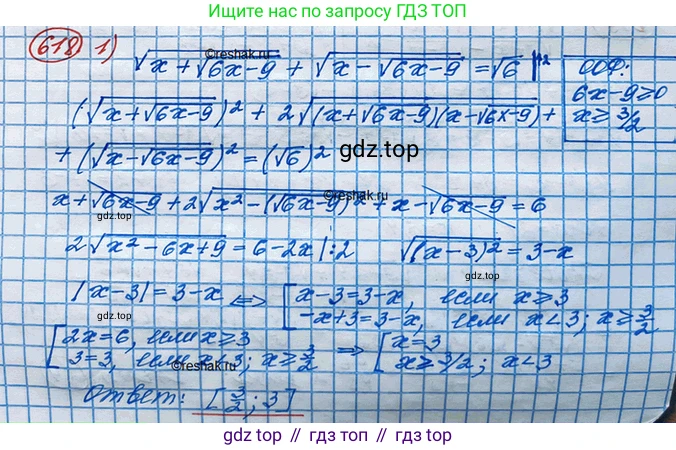 Ищите по запросу ГДЗ ТОП
618 1)
©reshak.ru
√(x + √(6x-9)) + √(x - √(6x-9)) = √6 |↑2
ООФ:
6x-9≥0
x≥ 3/2
(√(x+√(6x-9)))² + 2√((x+√(6x-9))(x-√(6x-9))) +
+ (√(x-√(6x-9)))² = (√6)²
gdz.top
©reshak.ru
x+√(6x-9) + 2√(x²-(√(6x-9))²) + x-√(6x-9) = 6
gdz.top
gdz.top
2√(x²-6x+9) = 6-2x |:2 √((x-3)²) = 3-x
|x-3| = 3-x ⟺ [ x-3=3-x, если x≥3
-x+3=3-x, если x<3; x≥3/2
[ 2x=6, если x≥3
3=3, если x<3; x≥3/2
⟹ [ x=3
x≥3/2; x<3
©reshak.ru
Ответ: [3/2; 3]
gdz.top
gdz.top // гдз.топ // gdz.top // гдз.топ